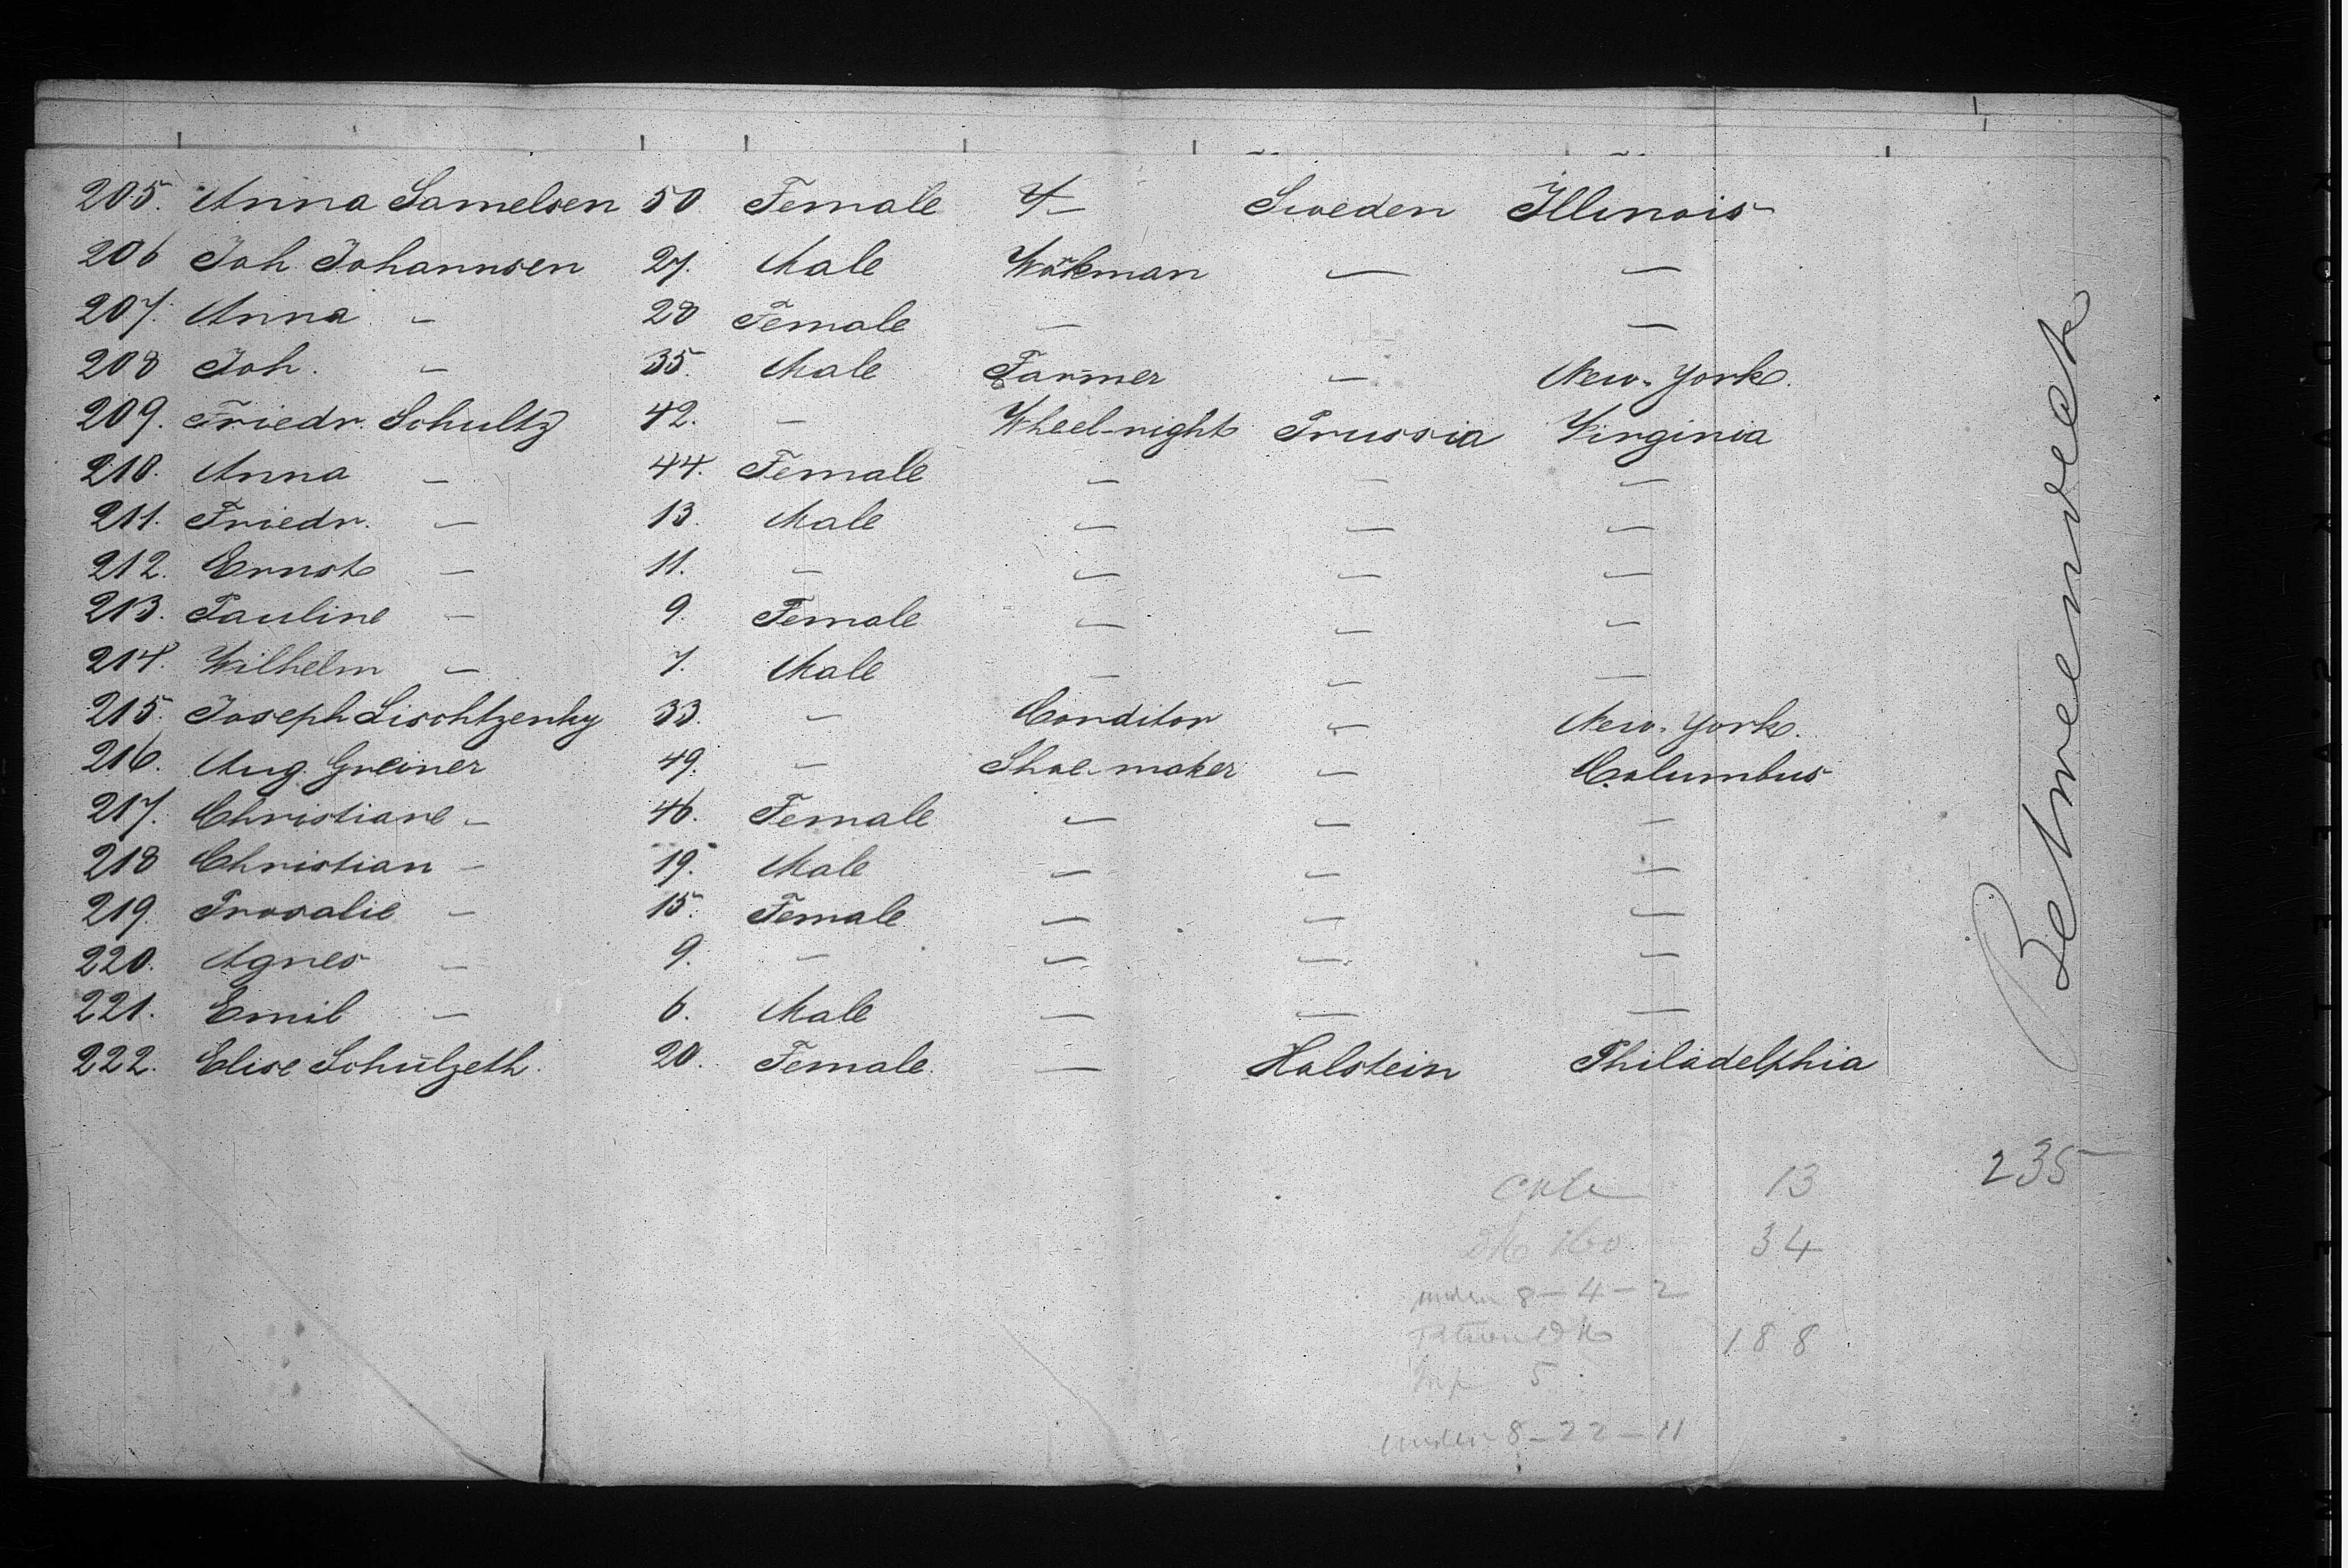 205. Anna Samelsen 50 Female 4- Sweden Illinois
206 Joh. Johannsen 27. Male Workman — —
207. Anna - 28 Female — - —
208 Joh. - 35. Male Farmer - New-York.
209. Friedr. Schultz 42. - Wheel-right Prussia Virginia
210. Anna - 44. Female - - -
211. Friedr. - 13. Male - - -
212. Ernst - 11. - - - -
213. Pauline - 9. Female - - -
214. Wilhelm - 7. Male - - -
215. Joseph 33. - Conditor - New-York.
216. Aug. Greiner 49. - Shoe-maker - Columbus
217. Christiane - 46. Female - - -
218 Christian - 19. Male - - -
219. Prosalie - 15. Female - - -
220. Agnes - 9. - - - -
221. Emil - 6. Male - - -
222. Elise Schülzeth. 20. Female. - Holstein Philadelphia
13
235
34
under 8-4-2
188
5
under 8-22-11